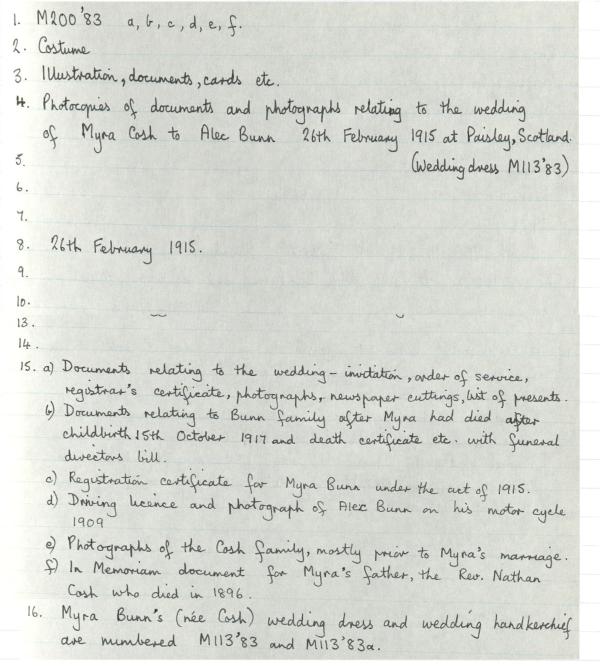 1. M200'83 a, b, c, d, e, f.
2. Costume
3. Illustration, documents, cards etc.
4. Photocopies of documents and photographs relating to the wedding
of Myra Cosh to Alec Bunn 26th February 1915 at Paisley, Scotland.
(Wedding dress M113'83)
5.
6.
7.
8. 26th February 1915.
9.
10.
13.
14.
15. a) Documents relating to the wedding - invitation, order of service,
registrar's certificate, photographs, newspaper cuttings, list of presents.
b) Documents relating to Bunn family after Myra had died after
childbirth 15th October 1917 and death certificate etc. with funeral
directors bill.
c) Registration certificate for Myra Bunn under the act of 1915.
d) Driving licence and photograph of Alec Bunn on his motor cycle
1909
e) Photographs of the Cosh family, mostly prior to Myra's marriage.
f) In Memoriam document for Myra's father, the Rev. Nathan
Cosh who died in 1896.
16. Myra Bunn's (née Cosh) wedding dress and wedding handkerchief
are numbered M113'83 and M113'83a.